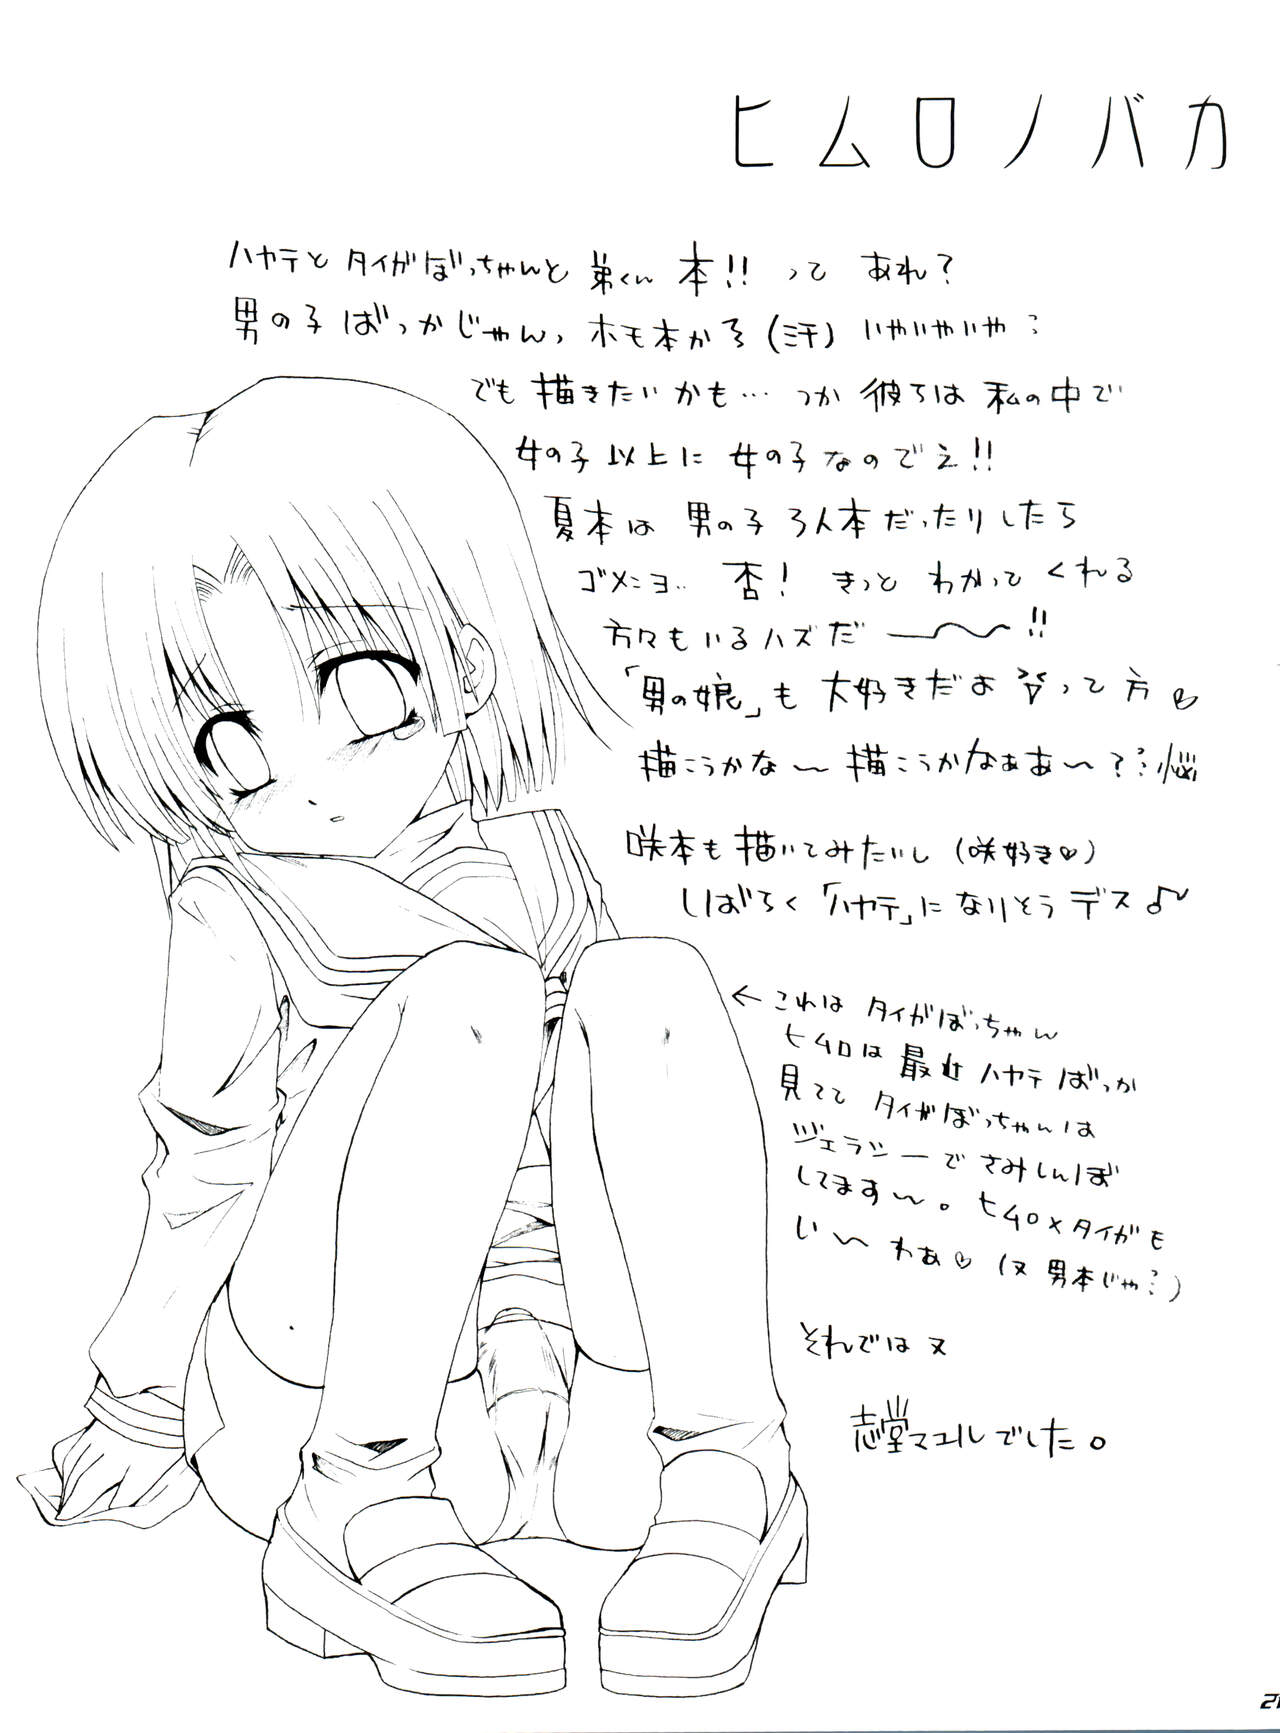 ヒムロノバカ
ハヤテと タイガぼっちゃんと 弟くん 本!! って あれ?
男の子ばっかじゃんっ ホモ本かろ(汗) いやいやいや
でも 描きたいかも… つか 彼らは 私の中で
女の子以上に 女の子なのでえ!!
夏本は 男の子3人本だったりしたら
ゴメンヨ.. 否! きっと わかってくれる
方々もいるハズだ ―〜 !!
「男の娘」も 大好きだよ って 方♡
描こうかな〜 描こうかなぁあ〜? 悩
咲本も描いてみたいし (咲好き♡)
しばらく「ハヤテ」に なりそう デス♪
← これは タイガぼっちゃん
ヒムロは 最近 ハヤテ ばっか
見てて タイガぼっちゃんは
ジェラシーで さみしんぼ
してます〜。 ヒムロ×タイガも
い〜 わぁ♡ (又 男本じゃ…)
それでは 又
志堂マユルでした。